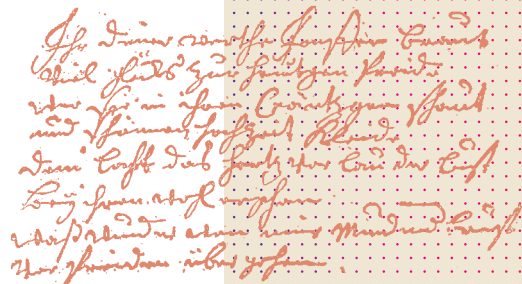 Ihr deine werthe Jonffer braut
viel glück zur heutgen freude
wer sie in ihren Crantz gen schaut
und schönen hochzeit Kleide
dem lacht das hertz vor lauter lust
bey ihren wohl ergehen
was wunder wen mir Mund und brust
vor freuden über gehen.